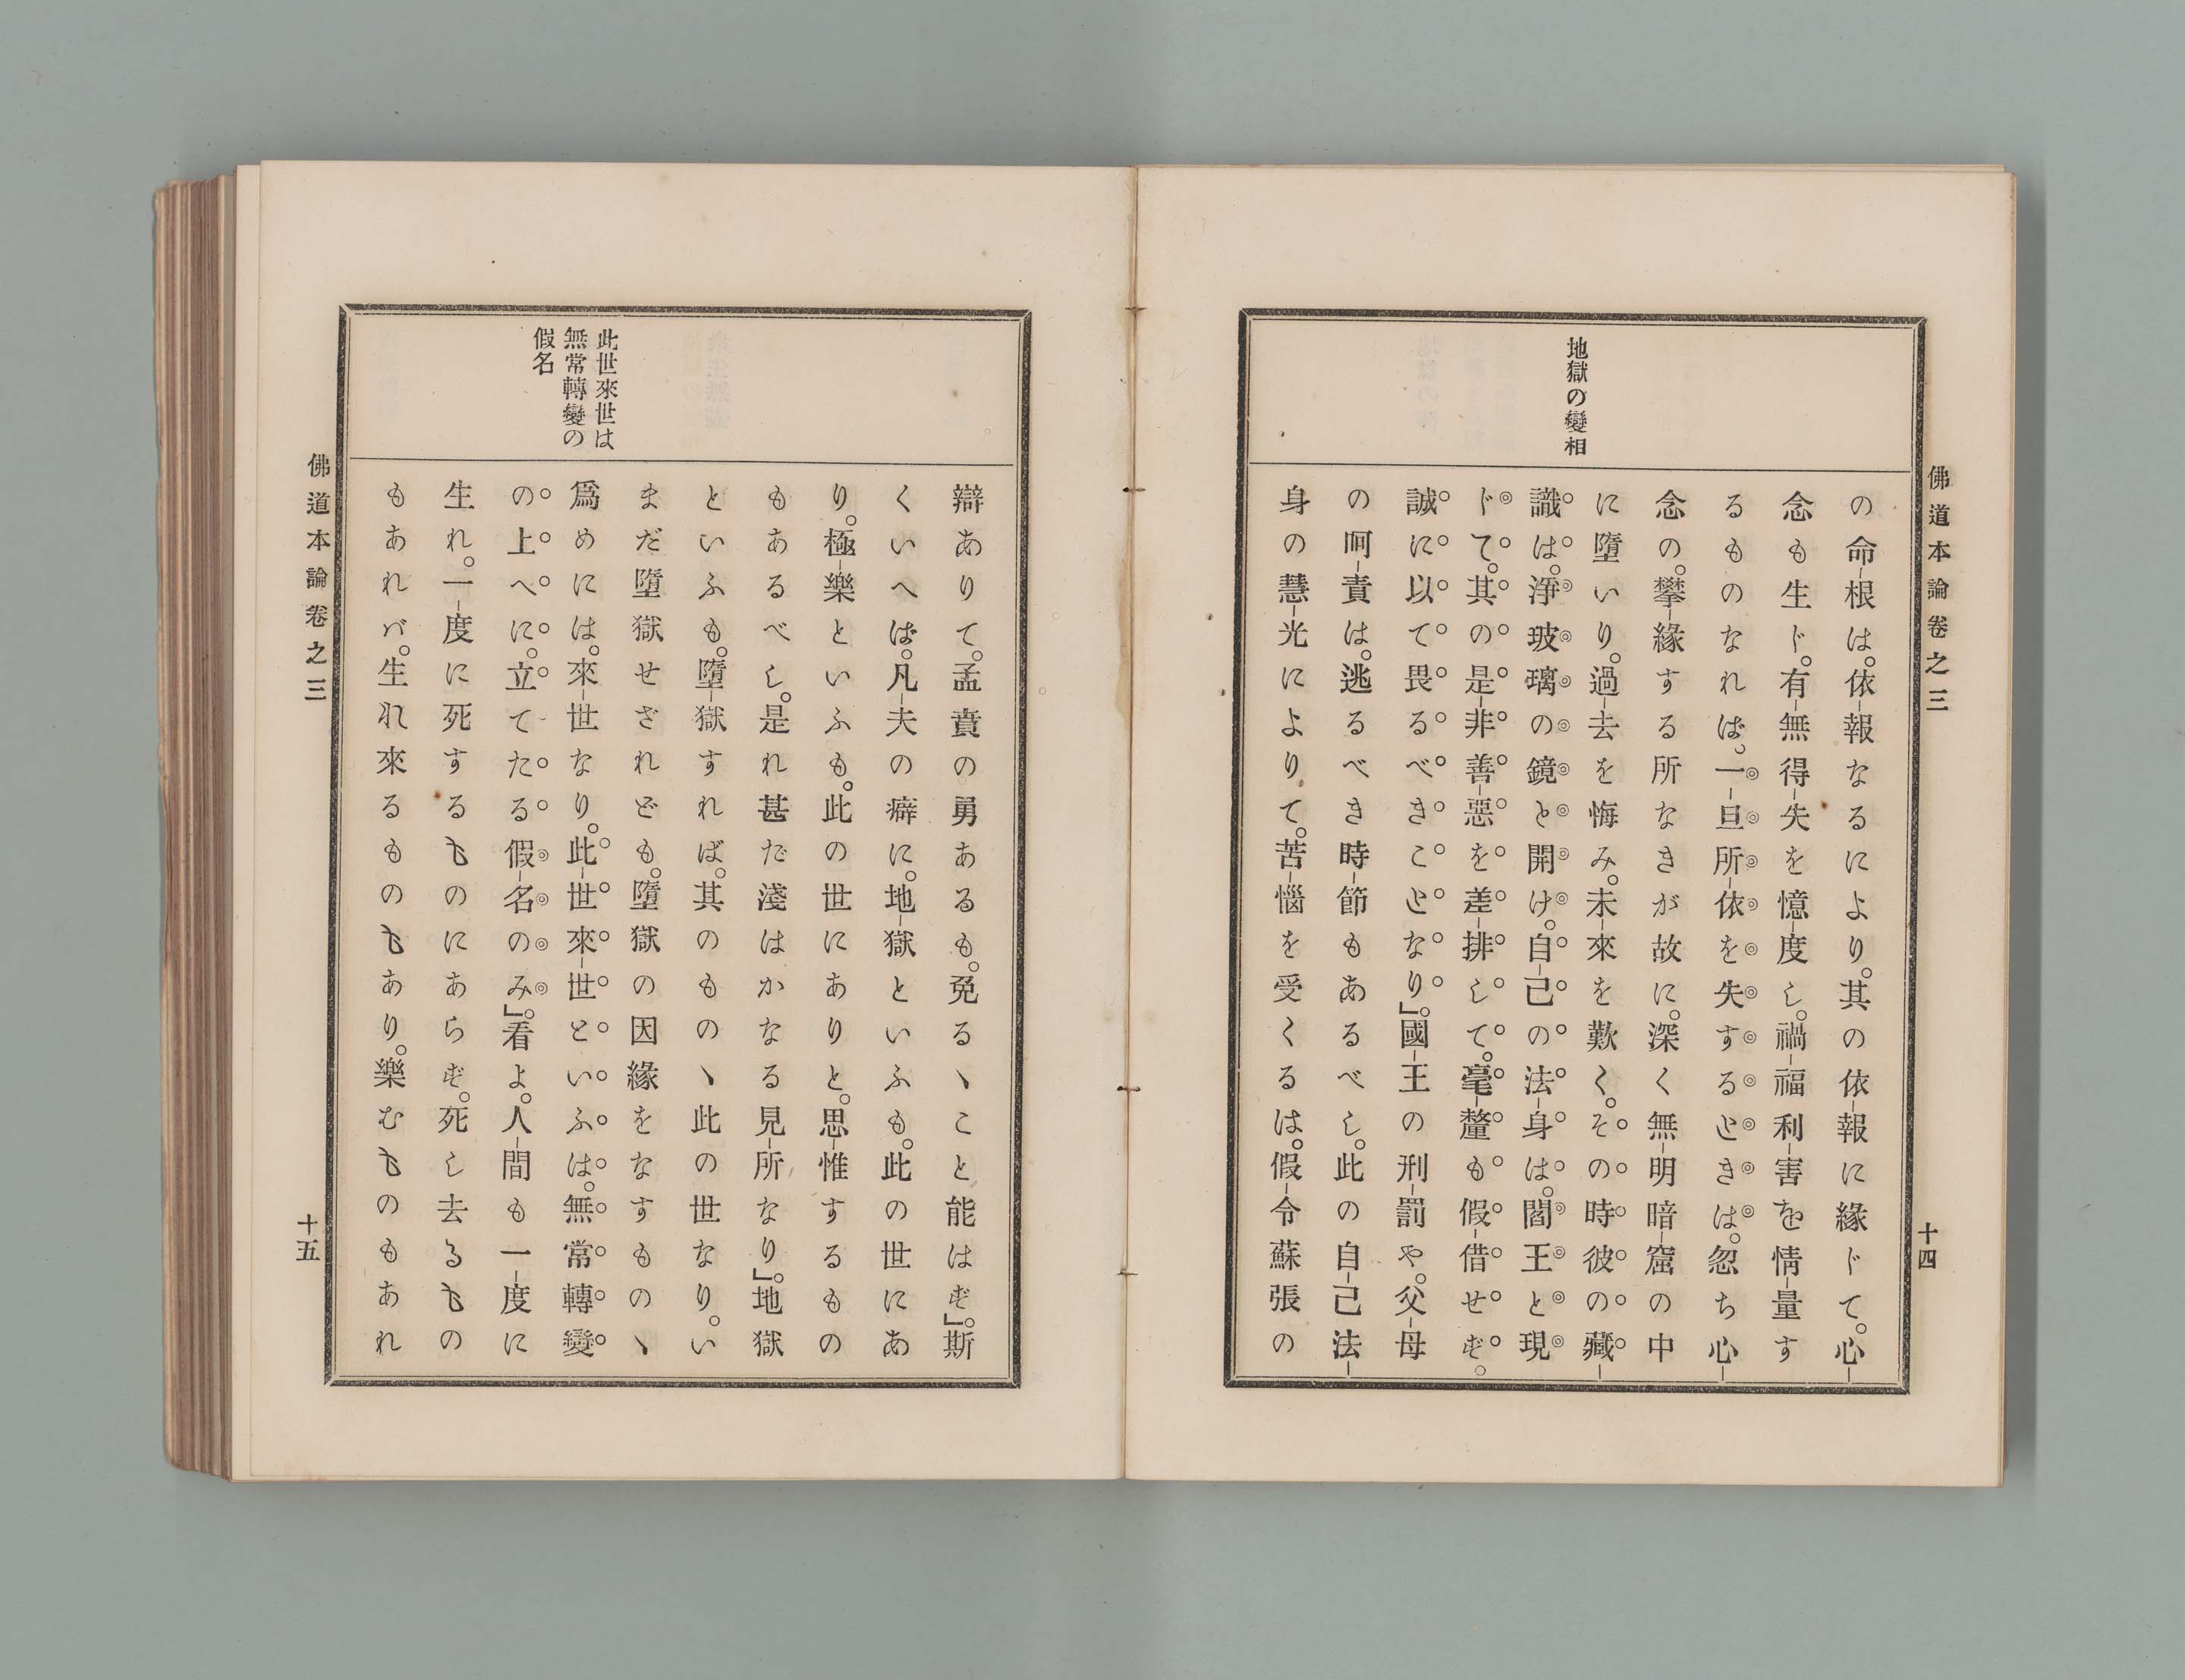 佛道本論卷之三
十四
地獄の變相
の命―根は。依―報なるにより。其の依―報に緣ドて。心―
念も生ド。有―無得―失を憶―度し。禍―福利―害を情―量す
るものなれば。一―旦所―依を失するときは。忽ち心―
念の。攀―緣する所なきが故に。深く無―明暗―窟の中
に墮いり。過―去を悔み。未―來を歎く。その時彼の藏―
識は。淨玻璃の鏡と開け。自―己の法―身は。閻王と現
ドて。其の是―非善―惡を差―排して。毫―釐も假―借せず。
誠に以て畏るべきことなり』。國―王の刑―罰や。父―母
の呵―責は。逃るべき時―節もあるべし。此の自―己法―
身の慧―光によりて。苦―惱を受くるは。假―令蘇張の
辯ありて。孟賁の勇あるも。免るゝこと能はず』。斯
くいへば。凡―夫の癖に。地―獄といふも。此の世にあ
り。極―樂といふも。此の世にありと。思―惟するもの
もあるべし。是れ甚だ淺はかなる見―所なり』。地獄
といふも。墮―獄すれば。其のものゝ此の世なり。い
まだ墮獄せざれども。墮獄の因緣をなすものゝ
爲めには。來―世なり。此―世來―世といふは。無常轉變
の上へに。立てたる假―名のみ』。看よ。人―間も一―度に
生れ。一―度に死するものにあらず。死し去るもの
もあれバ。生れ來るものもあり。樂むものもあれ
此世來世は
無常轉變の
假名
佛道本論卷之三
十五